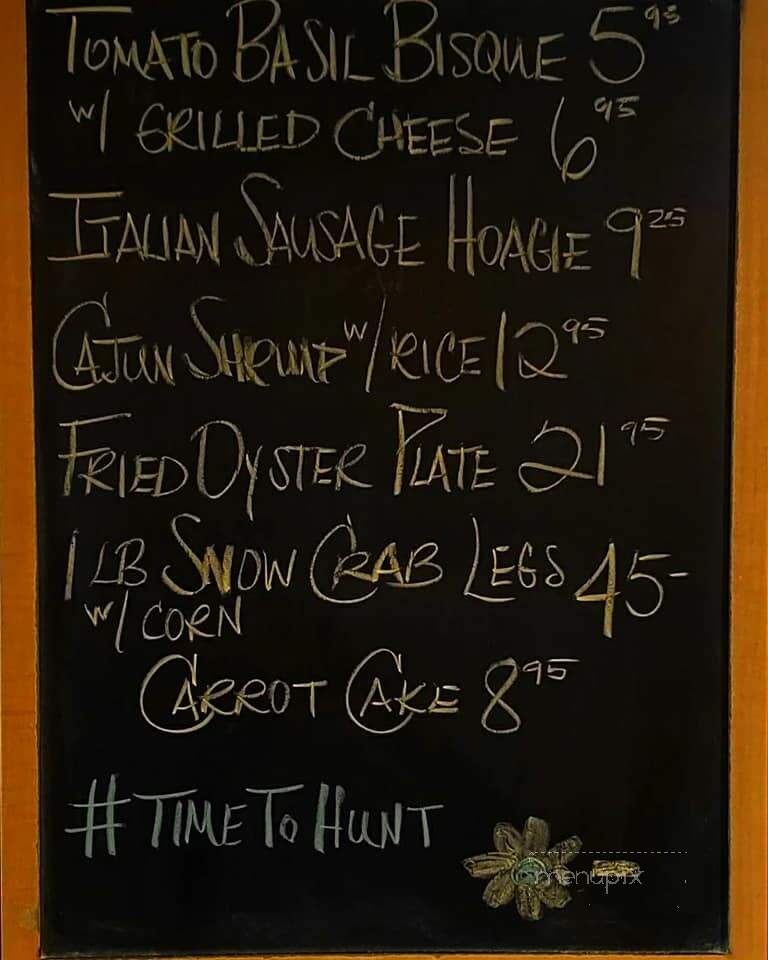 TOMATO BASIL BISQUE 5 95
W/ GRILLED CHEESE 6 95
ITALIAN SAUSAGE HOAGIE 9 25
CAJUN SHRIMP W/ RICE 12 95
FRIED OYSTER PLATE 21 95
1 LB SNOW CRAB LEGS 45-
W/ CORN
CARROT CAKE 8 95
#TIME TO HUNT
menupix